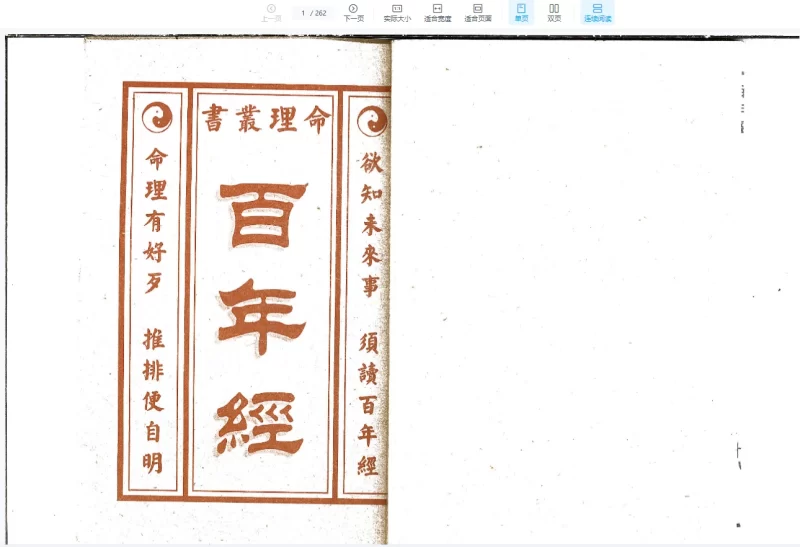 上一页
1 / 262
下一页
实际大小
适合宽度
适合页面
单页
双页
连续阅读
欲知未來事 須讀百年經
命理叢書
百年經
命理有好歹 推排便自明